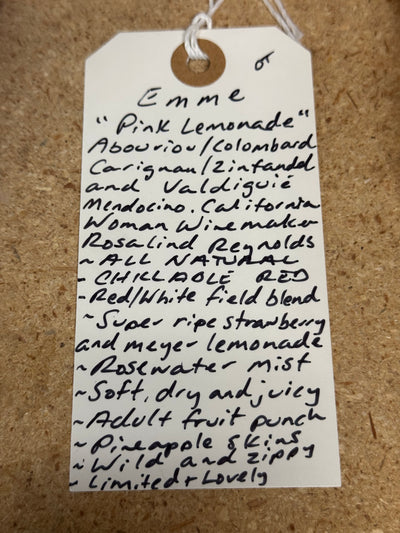 Emme
"Pink Lemonade"
Abouriou/Colombard
Carignan/Zinfandel
and Valdiguié
Mendocino. California
Woman Winemaker
Rosalind Reynolds
~ALL NATURAL
-CHILLABLE RED
-Red/White field blend
~Super ripe strawberry
and meyer lemonade
~Rosewater mist
~Soft, dry and juicy
~Adult fruit punch
~Pineapple skins
~Wild and zippy
~Limited + Lovely